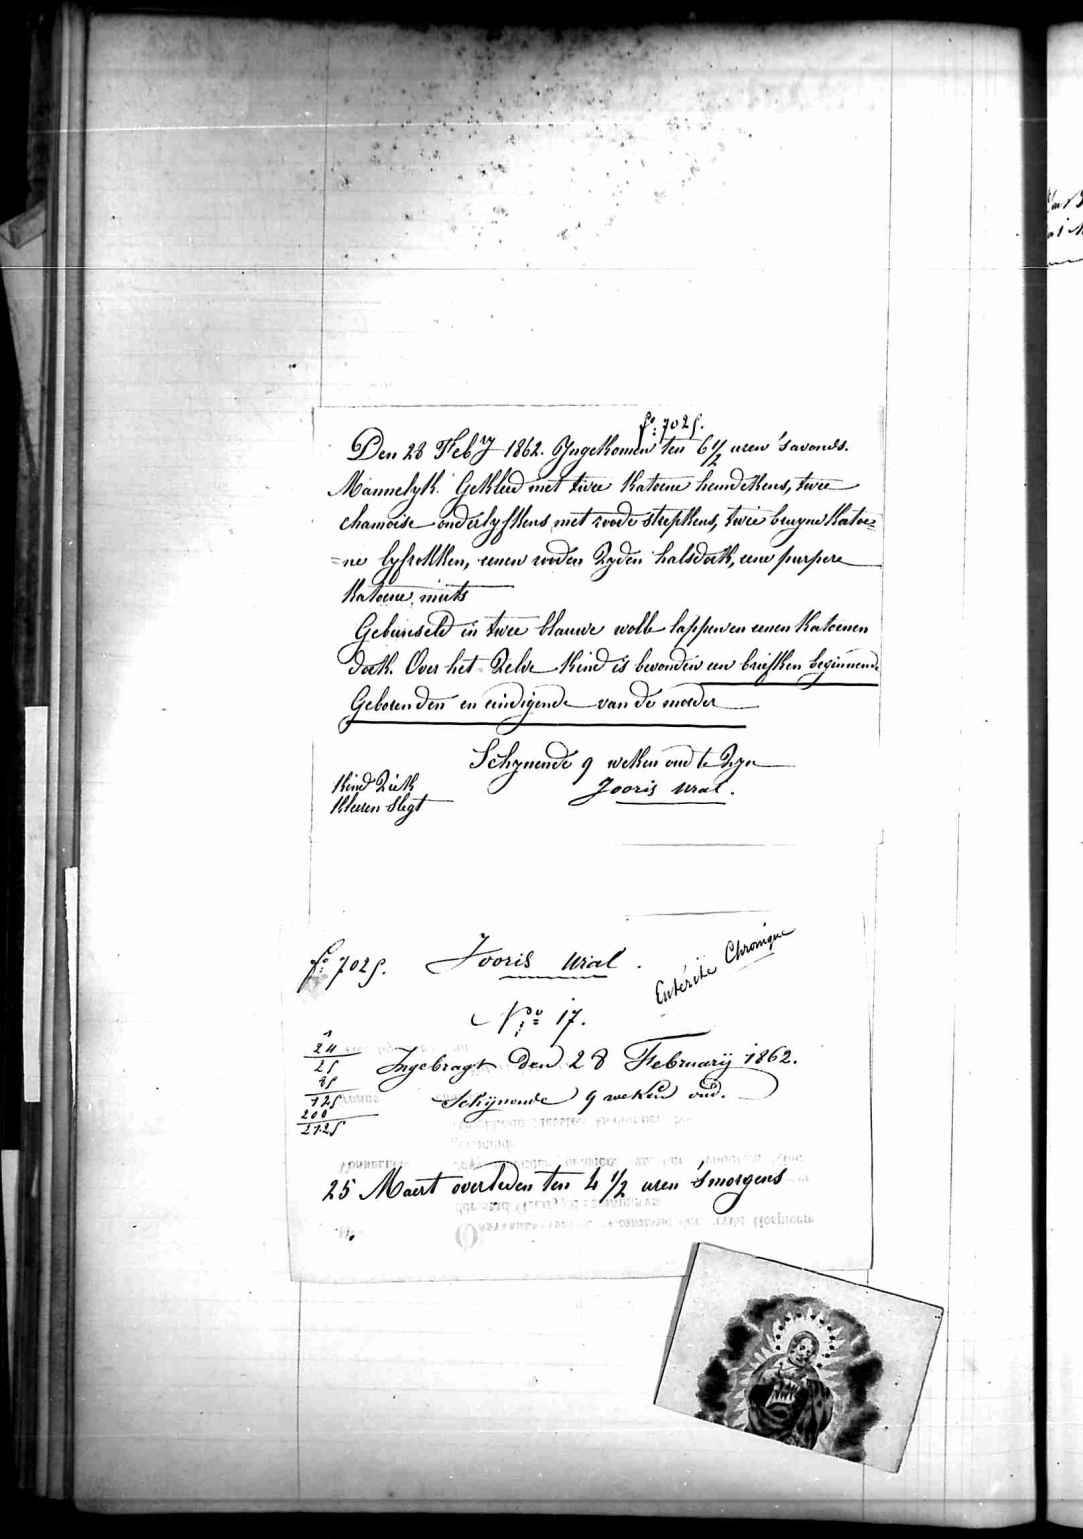 f°: 7025.
Den 28 Febry 1862. Ingekomen ten 6 1/2 uren 'savonds.
Mannelyk. Gekleed met twee katoene hemdekens, twee
chamoise onderlyfkens met roode strepkens, twee bruyne katoe=
=ne lyfrokken, eenen rooden Zyden halsdoek, eene purpere
katoene muts
Gebunseld in twee blauwe wolle lappen en eenen katoenen
doek. Over het Zelve kind is bevonden een briefken beginnende
Geboren den en eindigende van de moeder
Schynende 9 weken oud te Zyn
Kind Ziek
Kleeren Slegt
Jooris Ural.
f°: 7025.
Jooris Ural.
Entérite Chronique
N°= 17.
24
25
Ingebragt den 28 February 1862.
125
Schijnende 9 weken oud.
200
2125
25 Maert overleden ten 4 1/2 uren 'smorgens